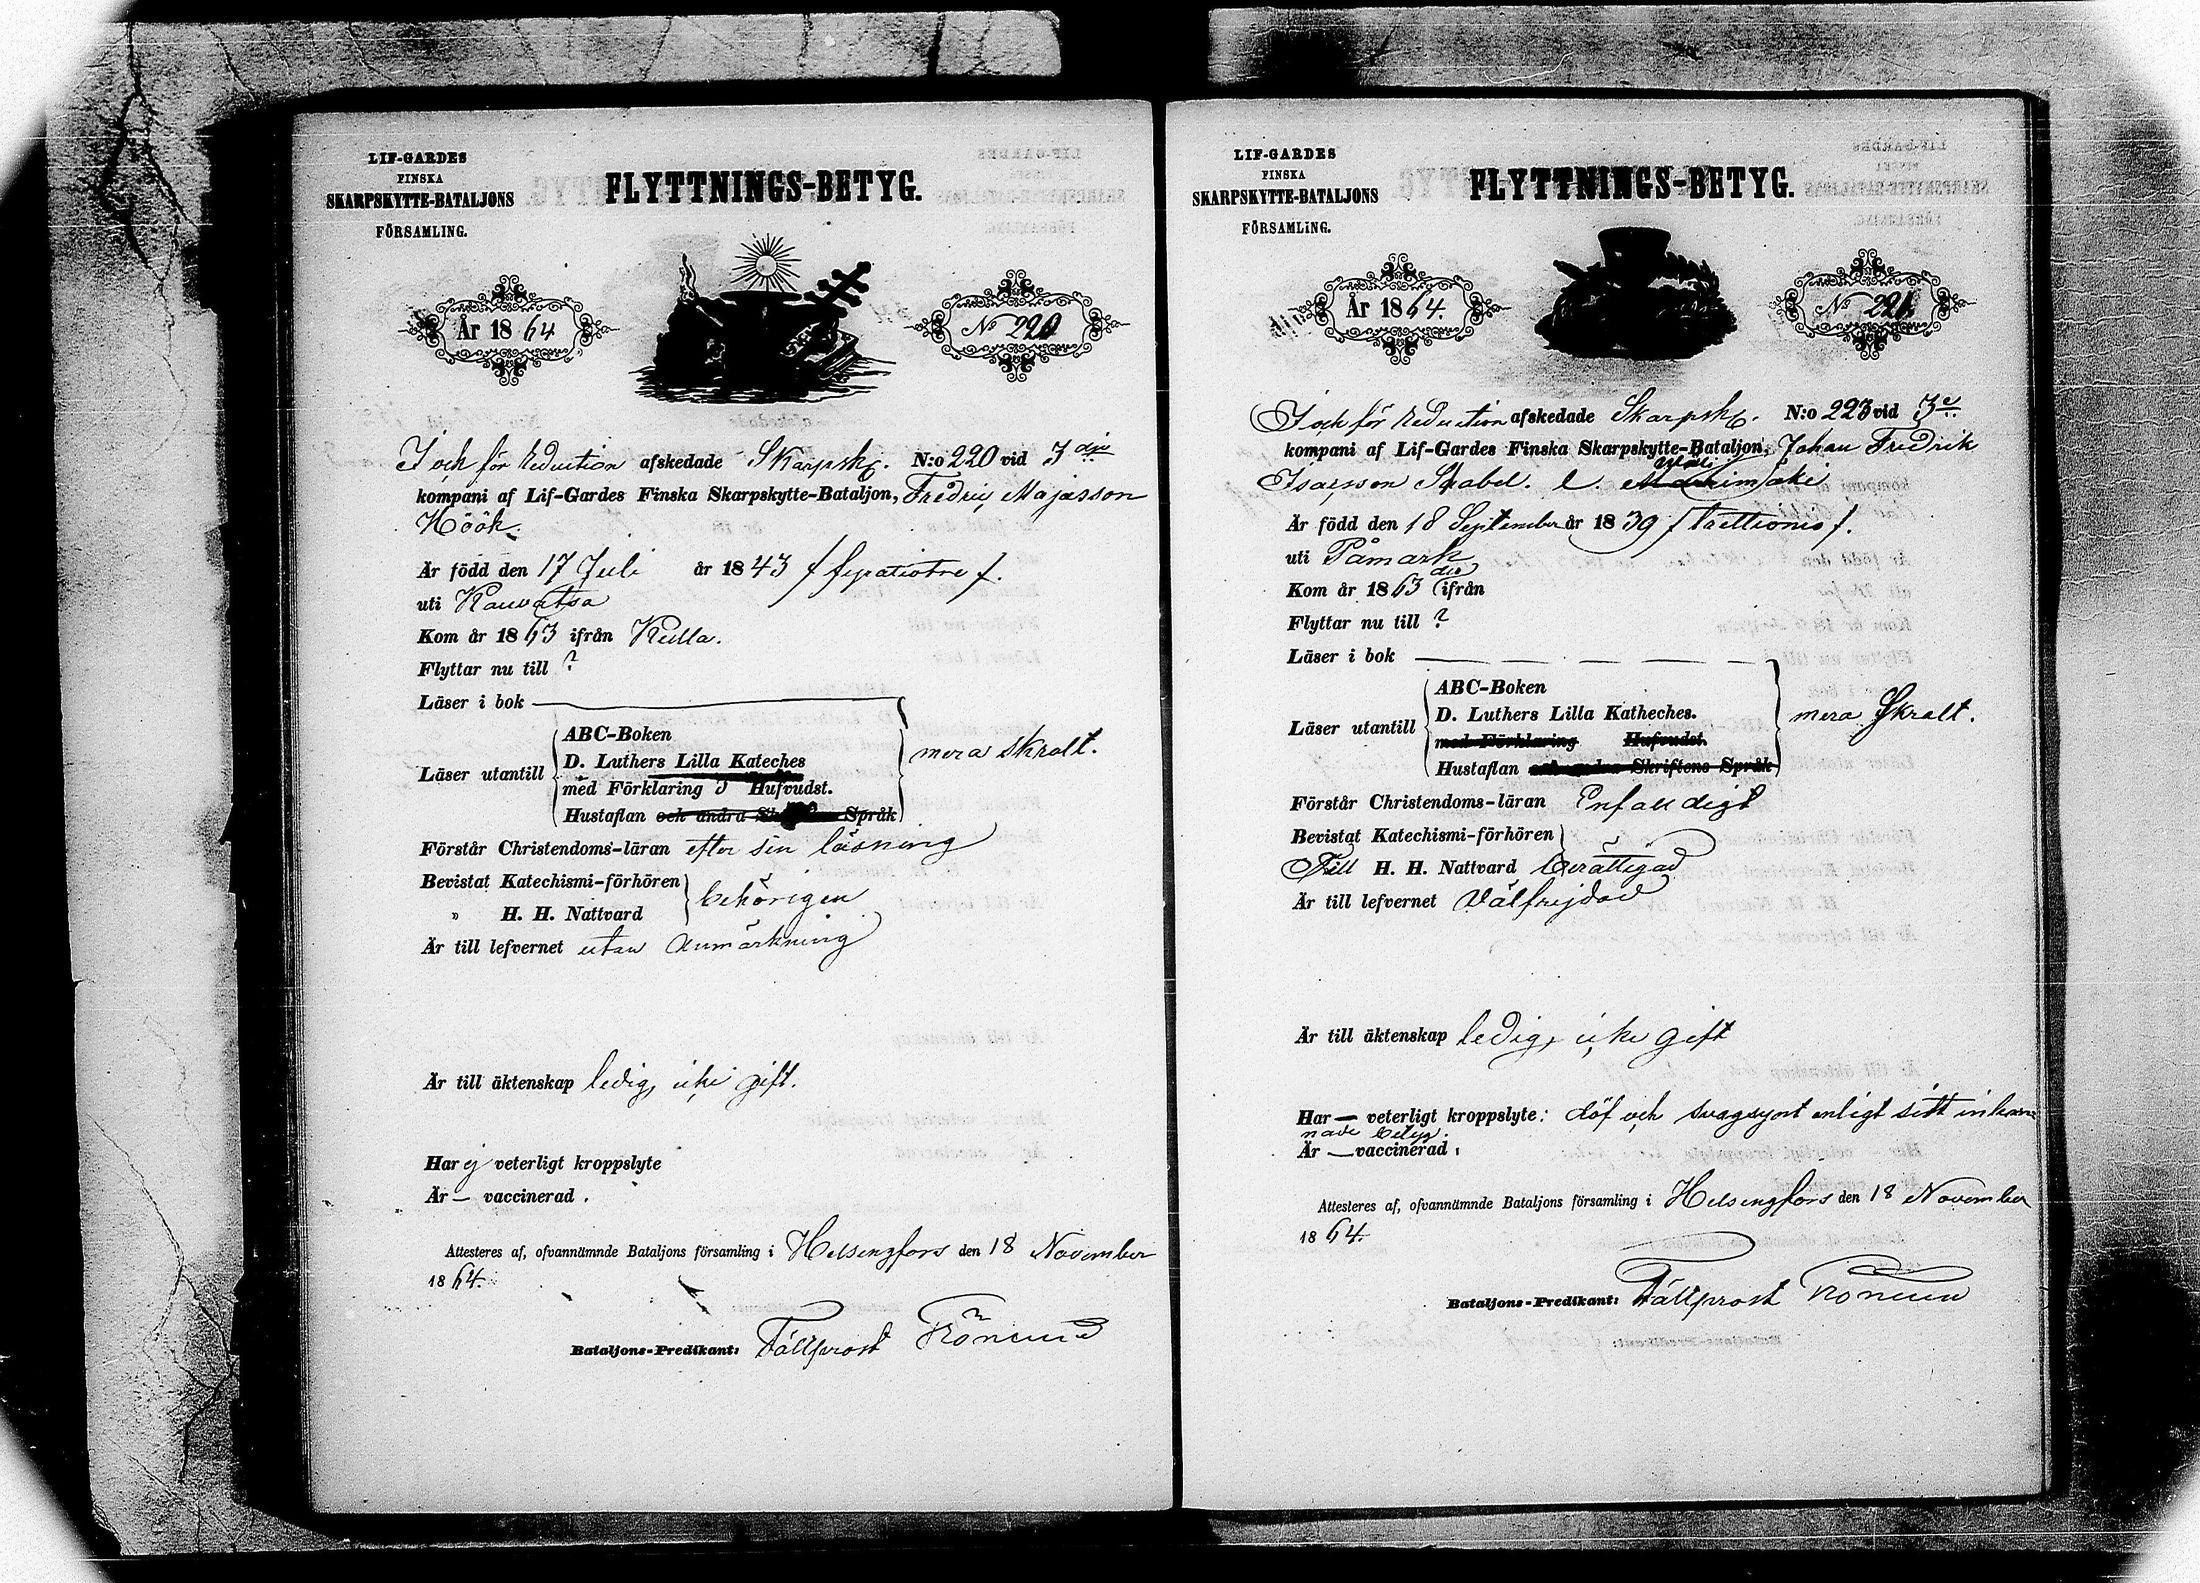 LIF-GARDES
FINSKA
SKARPSKYTTE-BATALJONS
FÖRSAMLING.
FLYTTNINGS-BETYG.
År 1864
No 220
I och för Reduction afskedade Skarpsk. N:o 220 vid 3 dje
kompani af Lif-Gardes Finska Skarpskytte-Bataljon, Fredric Majasson
Höök.
Är född den 17 Juli år 1843 / fyratiotre /.
uti Kauvatsa
Kom år 1863 ifrån Kulla.
Flyttar nu till ?
Läser i bok
Läser utantill
ABC-Boken
D. Luthers Lilla Kateches
med Förklaring Hufvudst.
Hustaflan och andra Språk
mera skralt.
Förstår Christendoms-läran efter sin läsning
Bevistat Katechismi-förhören
" H. H. Nattvard
behörigen
Är till lefvernet utan anmärkning
Är till äktenskap ledig, icke gift.
Har ej veterligt kroppslyte
Är — vaccinerad.
Attesteres af, ofvannämnde Bataljons församling i Helsingfors den 18 November
1864.
Bataljons-Predikant: Fältprost
LIF-GARDES
FINSKA
SKARPSKYTTE-BATALJONS
FÖRSAMLING.
FLYTTNINGS-BETYG.
År 1864.
No 221.
I och för Reduction afskedade Skarpsk. N:o 223 vid 3e
kompani af Lif-Gardes Finska Skarpskytte-Bataljon, Johan Fredrik
Isacsson Stabel. l.
Är född den 18 September år 1839 / trettionio /.
uti Påmark
Kom år 1863 ifrån dio
Flyttar nu till ?
Läser i bok
Läser utantill
ABC-Boken
D. Luthers Lilla Katheches.
med Förklaring Hufvudst.
Hustaflan och andra Skriftens Språk
mera skralt.
Förstår Christendoms-läran Enfaldigt
Bevistat Katechismi-förhören
Till H. H. Nattvard berättigad
Är till lefvernet Välfrejdad
Är till äktenskap ledig, icke gift
Har — veterligt kroppslyte: döf och svagsynt enligt sitt inhem
nade betyg.
Är — vaccinerad.
Attesteres af, ofvannämnde Bataljons församling i Helsingfors den 18 November
1864.
Bataljons-Predikant: Fältprost